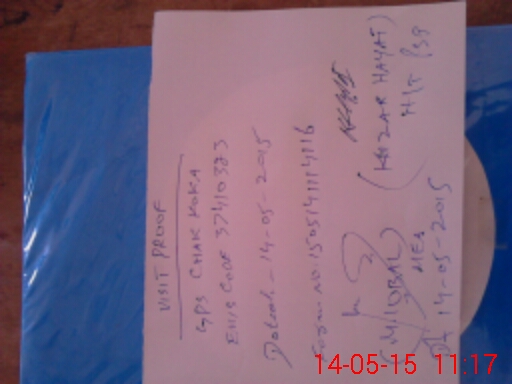 VISIT PROOF
GPS CHAK KOKA
EMIS CODE 37410323
Dated:- 14-05-2015
Form no. 150514114116
(KHIZAR HAYAT)
(M. IQBAL)
Dt 14-05-2015
14-05-15 11:17